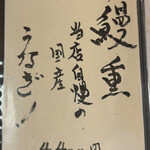 鰻重
当店自慢の
国産
うなぎ！